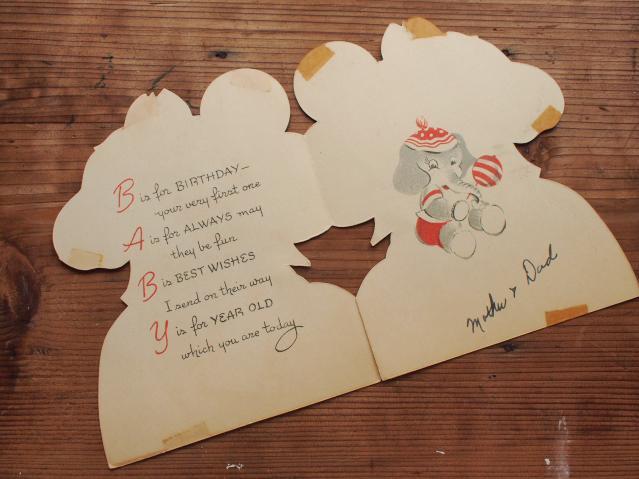 B is for BIRTHDAY—
your very first one
A is for ALWAYS may
they be fun
B is BEST WISHES
I send on their way
Y is for YEAR OLD
which you are today
Mother & Dad